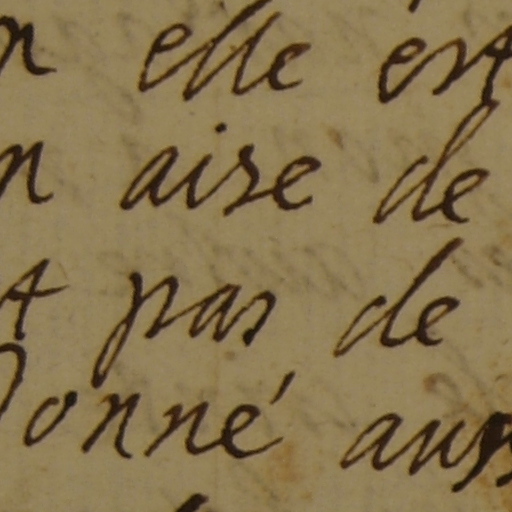 n elle est
n aise de
t pas de
donné aus